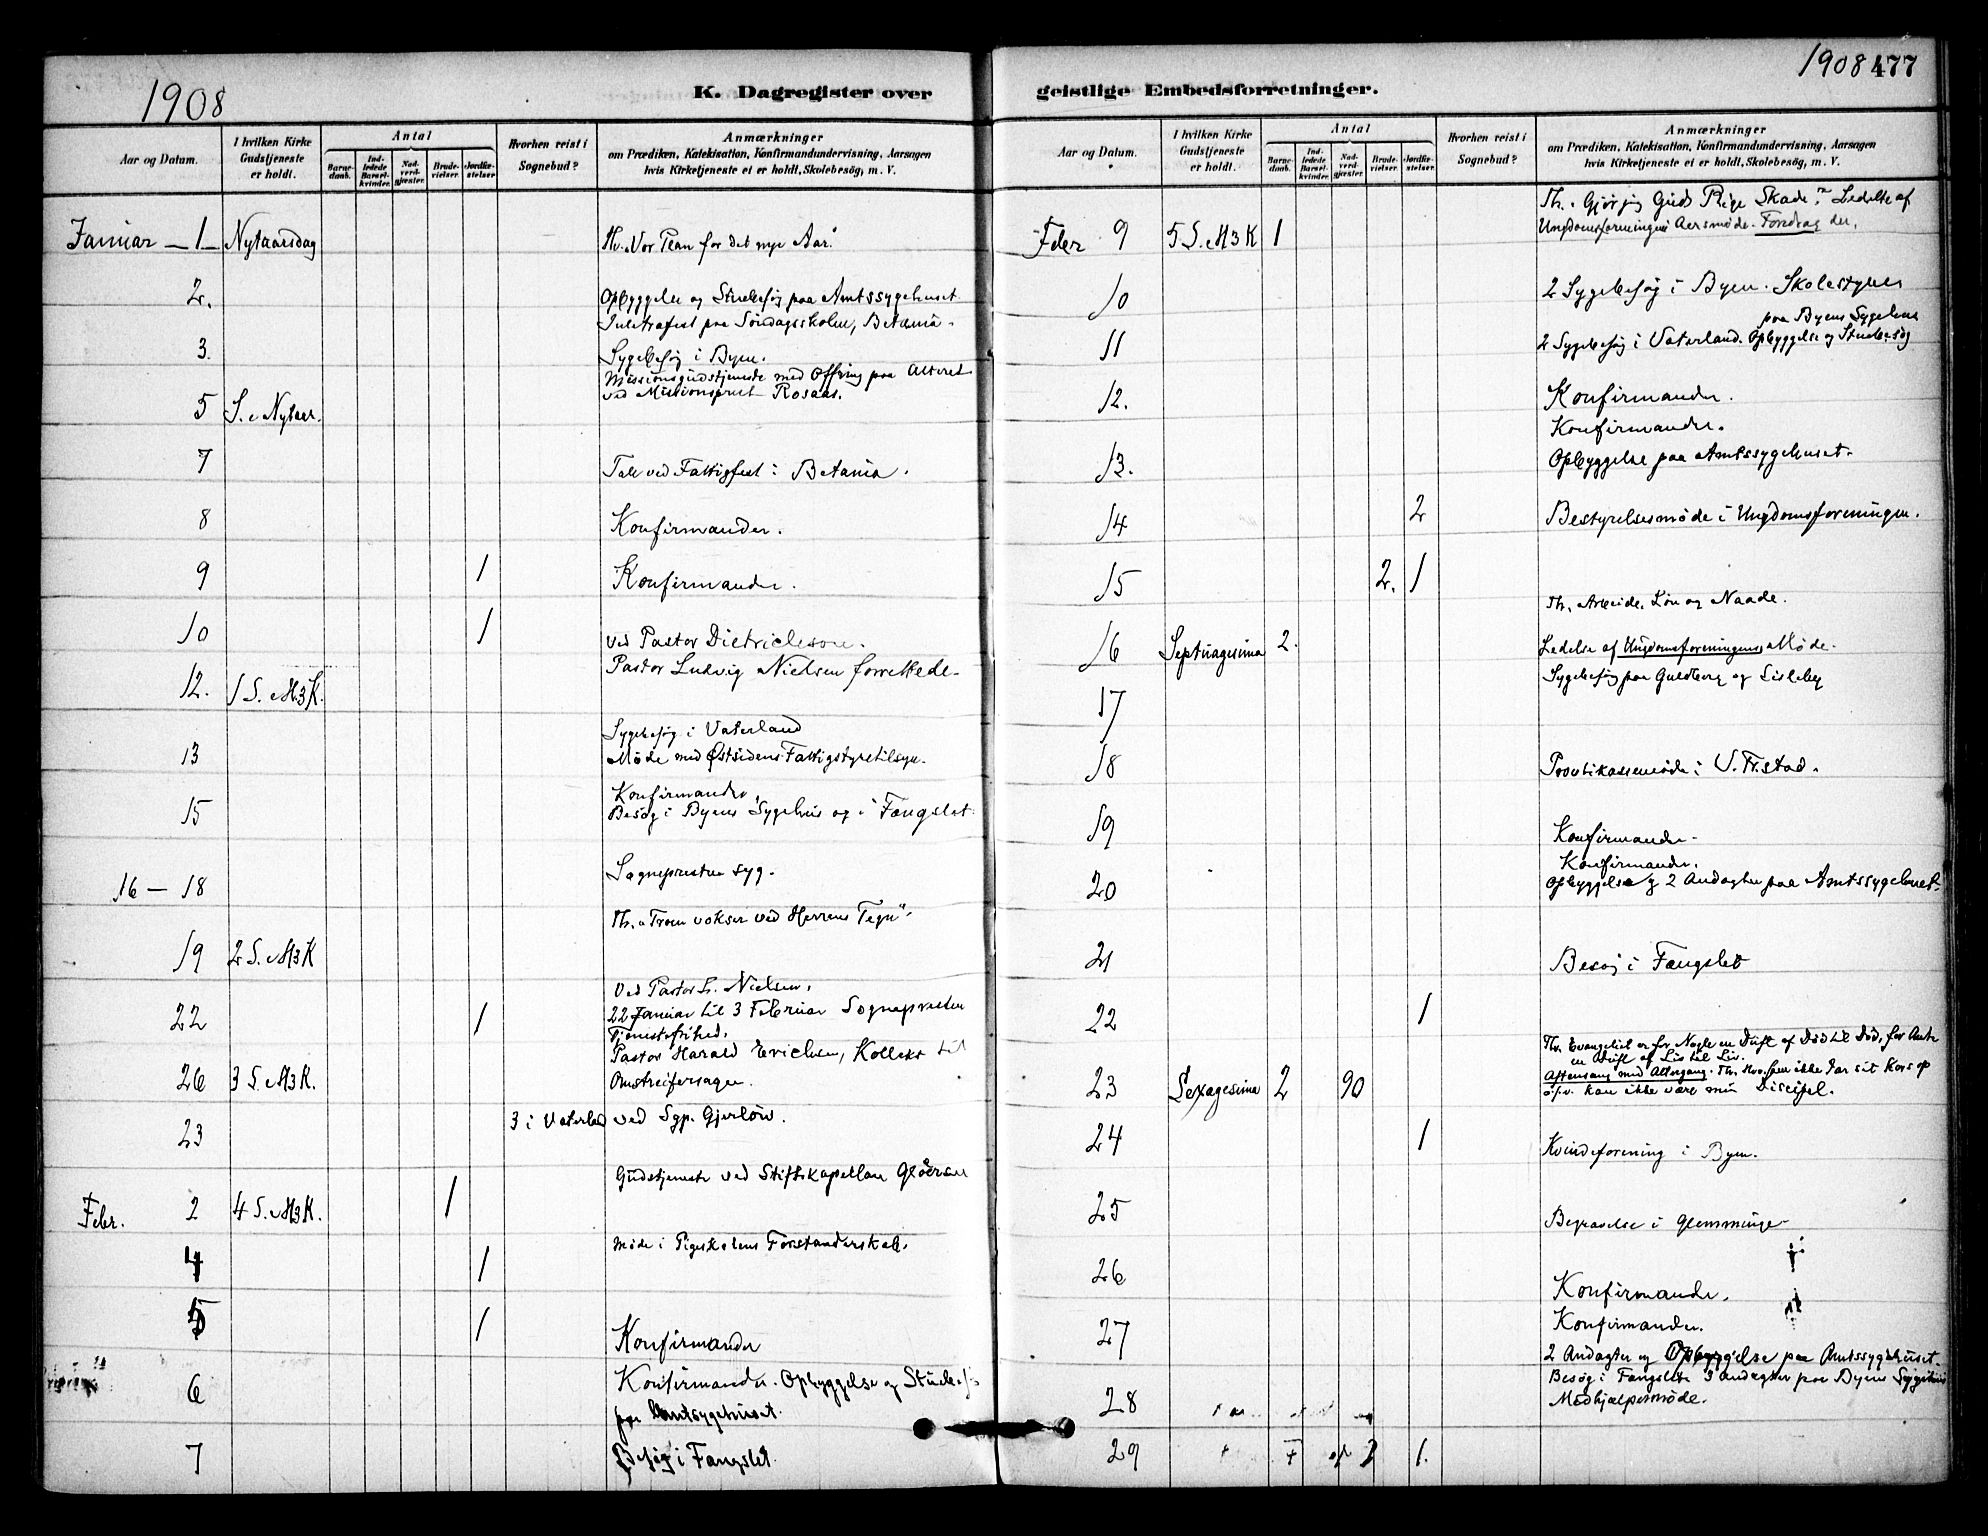 1908
K. Dagregister over
Aar og Datum.
I hvilken Kirke Gudstjeneste er holdt.
Antal
Barnedaab.
Indledede Barselkvinder.
Nadverdgjæster.
Brudevielser.
Jordfæstelser
Hvorhen reist i Sognebud?
Anmærkninger
om Prædiken, Katekisation, Konfirmandundervisning, Aarsagen
hvis Kirketjeneste ei er holdt, Skolebesög, m. V.
Januar 1 Nytaarsdag Th. Vor Plan for det nye Aar.
2. Opbyggelse og Stuebesøg paa Amtssygehuset
Juletræfest paa Søndagsskolen, Betania.
3. Sygebesøg i Byen.
Missionsgudstjeneste med Offring paa Alteret
5 S. e. Nytaar. ved Missionsprest Rosaas.
7 Tale ved Fattigfest i Betania.
8 Konfirmander.
9 1 Konfirmander.
10 1 ved Pastor Dietrichson.
12. 1 S. e. H3K. Pastor Ludvig Nielsen forrettede.
Sygebesøg i Vaterland
13 Møde med Østsidens Fattigstyretilsyn.
Konfirmander,
15 Besøg i Byens Sygehus og i Fængslet
16 — 18 Sognepresten syg.
Th. "Troen vokser ved Herrens Tegn".
19 2 S. e. H3K
Ved Pastor L. Nielsen.
22 1 22 Januar til 3 Februar Sognepresten
Tjenestefrihed.
Pastor Harald Erichsen, Kollekt til
26 3 S. e. H3K. Omstreifersagen.
23 3 i Vaterland ved Sgp. Gjerløw.
Gudstjeneste ved Stiftskapellan Gløersen
Febr. 2 4 S. e. H3K. 1
Møde i Pigeskolens Forstanderskab.
4 1
5 1 Konfirmander
6 Konfirmander. Opbyggelse og Stuebesøg
paa Amtssygehuset.
7 Besøg i Fængslet
1908 477
geistlige Embedsforretninger.
Aar og Datum.
I hvilken Kirke Gudstjeneste er holdt.
Antal
Barnedaab.
Indledede Barselkvinder.
Nadverdgjæster.
Brudevielser.
Jordfæstelser.
Hvorhen reist i Sognebud?
Anmærkninger
om Prædiken, Katekisation, Konfirmandundervisning, Aarsagen
hvis Kirketjeneste ei er holdt, Skolebesög, m. V.
Th. Gjør jeg Guds Rige Skade? Ledelse af
Febr 9 5 S. e. H3K 1 Ungdomsforeningens Aarsmøde. Foredrag der.
10 2 Sygebesøg i Byen. Skolestyret
paa Byens Sygehus
11 2 Sygebesøg i Vaterland. Opbyggelse og Stuebesøg
12. Konfirmander.
Konfirmander.
13. Opbyggelse paa Amtssygehuset.
14 2 Bestyrelsesmøde i Ungdomsforeningen.
15 2. 1
Th. Arbeide, Løn og Naade.
16 Septuagesima 2. Ledelse af Ungdomsforeningens Møde.
Sygebesøg paa Guldberg og Lisleby
17
18 Provtikassemøde i V. Fr.stad.
19 Konfirmander.
Konfirmander.
20 Opbyggelse og 2 Andagter paa Amtssygehuset.
21 Besøg i Fængslet
22 1
Th. Evangeliet er for Nogle en Duft af Død til Død, for Andre
en Duft af Liv til Liv.
Aftensang med Altergang. Th. Hvo som ikke tar sit Kors op
23 Sexagesima 2 90 o.s.v. kan ikke være min Discipel.
24 1 Kvindeforening i Byen.
25 Begravelse i Glemminge
26
Konfirmander.
27 Konfirmander.
2 Andagter og Opbyggelse paa Amtssygehuset.
Besøg i Fængslet 3 Andagter paa Byens Sygehus
28 Medhjælpermøde.
29 1.